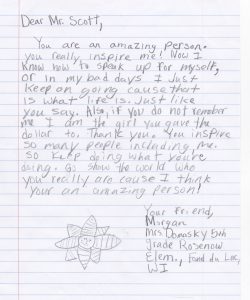 Dear Mr. Scott,
You are an amazing person.
you really inspire me! Now I
know how to speak up for myself,
or in my bad days I Just
keep on going cause that
is what life is. Just like
you say. Also, if you do not remeber
me I am the girl you gave the
dollar to. Thank you. You inspire
so many people including me.
So keep doing what you're
doing. Go show the world who
you really are cause I think
your an amazing person!
Your Friend,
Morgan
Mrs. Domasky 5th
grade Rosenow
Elem., Fond du Lac,
WI